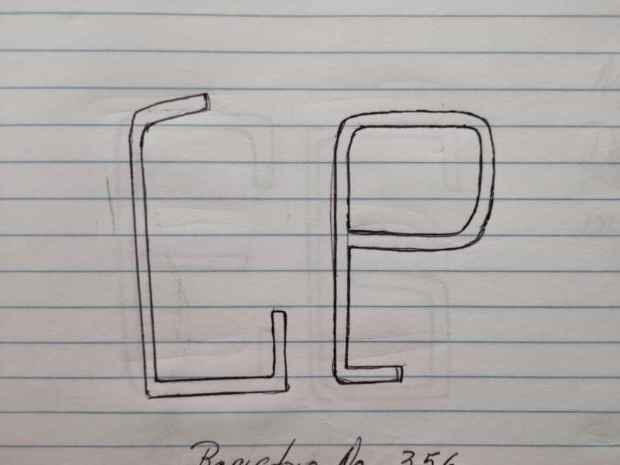 LP
Registro No. 356